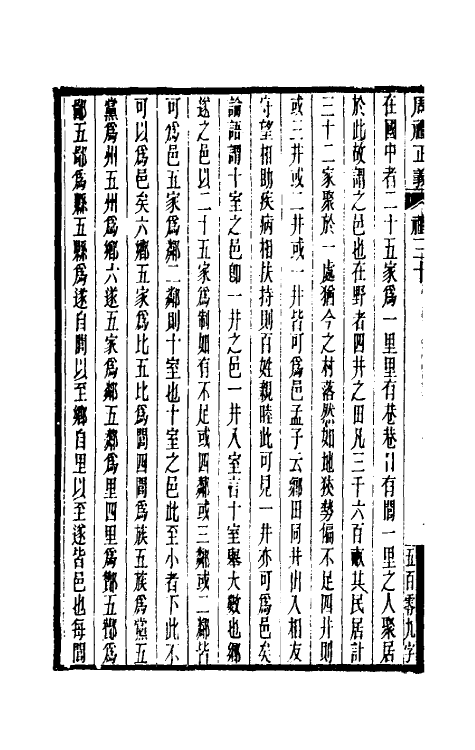 周禮正義 禮三十
五百零九字
在國中者二十五家爲一里里有巷巷口有閭一里之人聚居
於此故謂之邑也在野者四井之田凡三千六百畝其民居計
三十二家聚於一處猶今之村落然如地狹勢偏不足四井則
或三井或二井或一井皆可爲邑孟子云鄉田同井出入相友
守望相助疾病相扶持則百姓親睦此可見一井亦可爲邑矣
論語謂十室之邑卽一井之邑一井八室言十室舉大數也鄉
遂之邑以二十五家爲制如有不足或四鄰或三鄰或二鄰皆
可爲邑五家爲鄰二鄰則十室也十室之邑此至小者下此不
可以爲邑矣六鄉五家爲比五比爲閭四閭爲族五族爲黨五
黨爲州五州爲鄉六遂五家爲鄰五鄰爲里四里爲酇五酇爲
鄙五鄙爲縣五縣爲遂自閭以至鄉自里以至遂皆邑也每閭